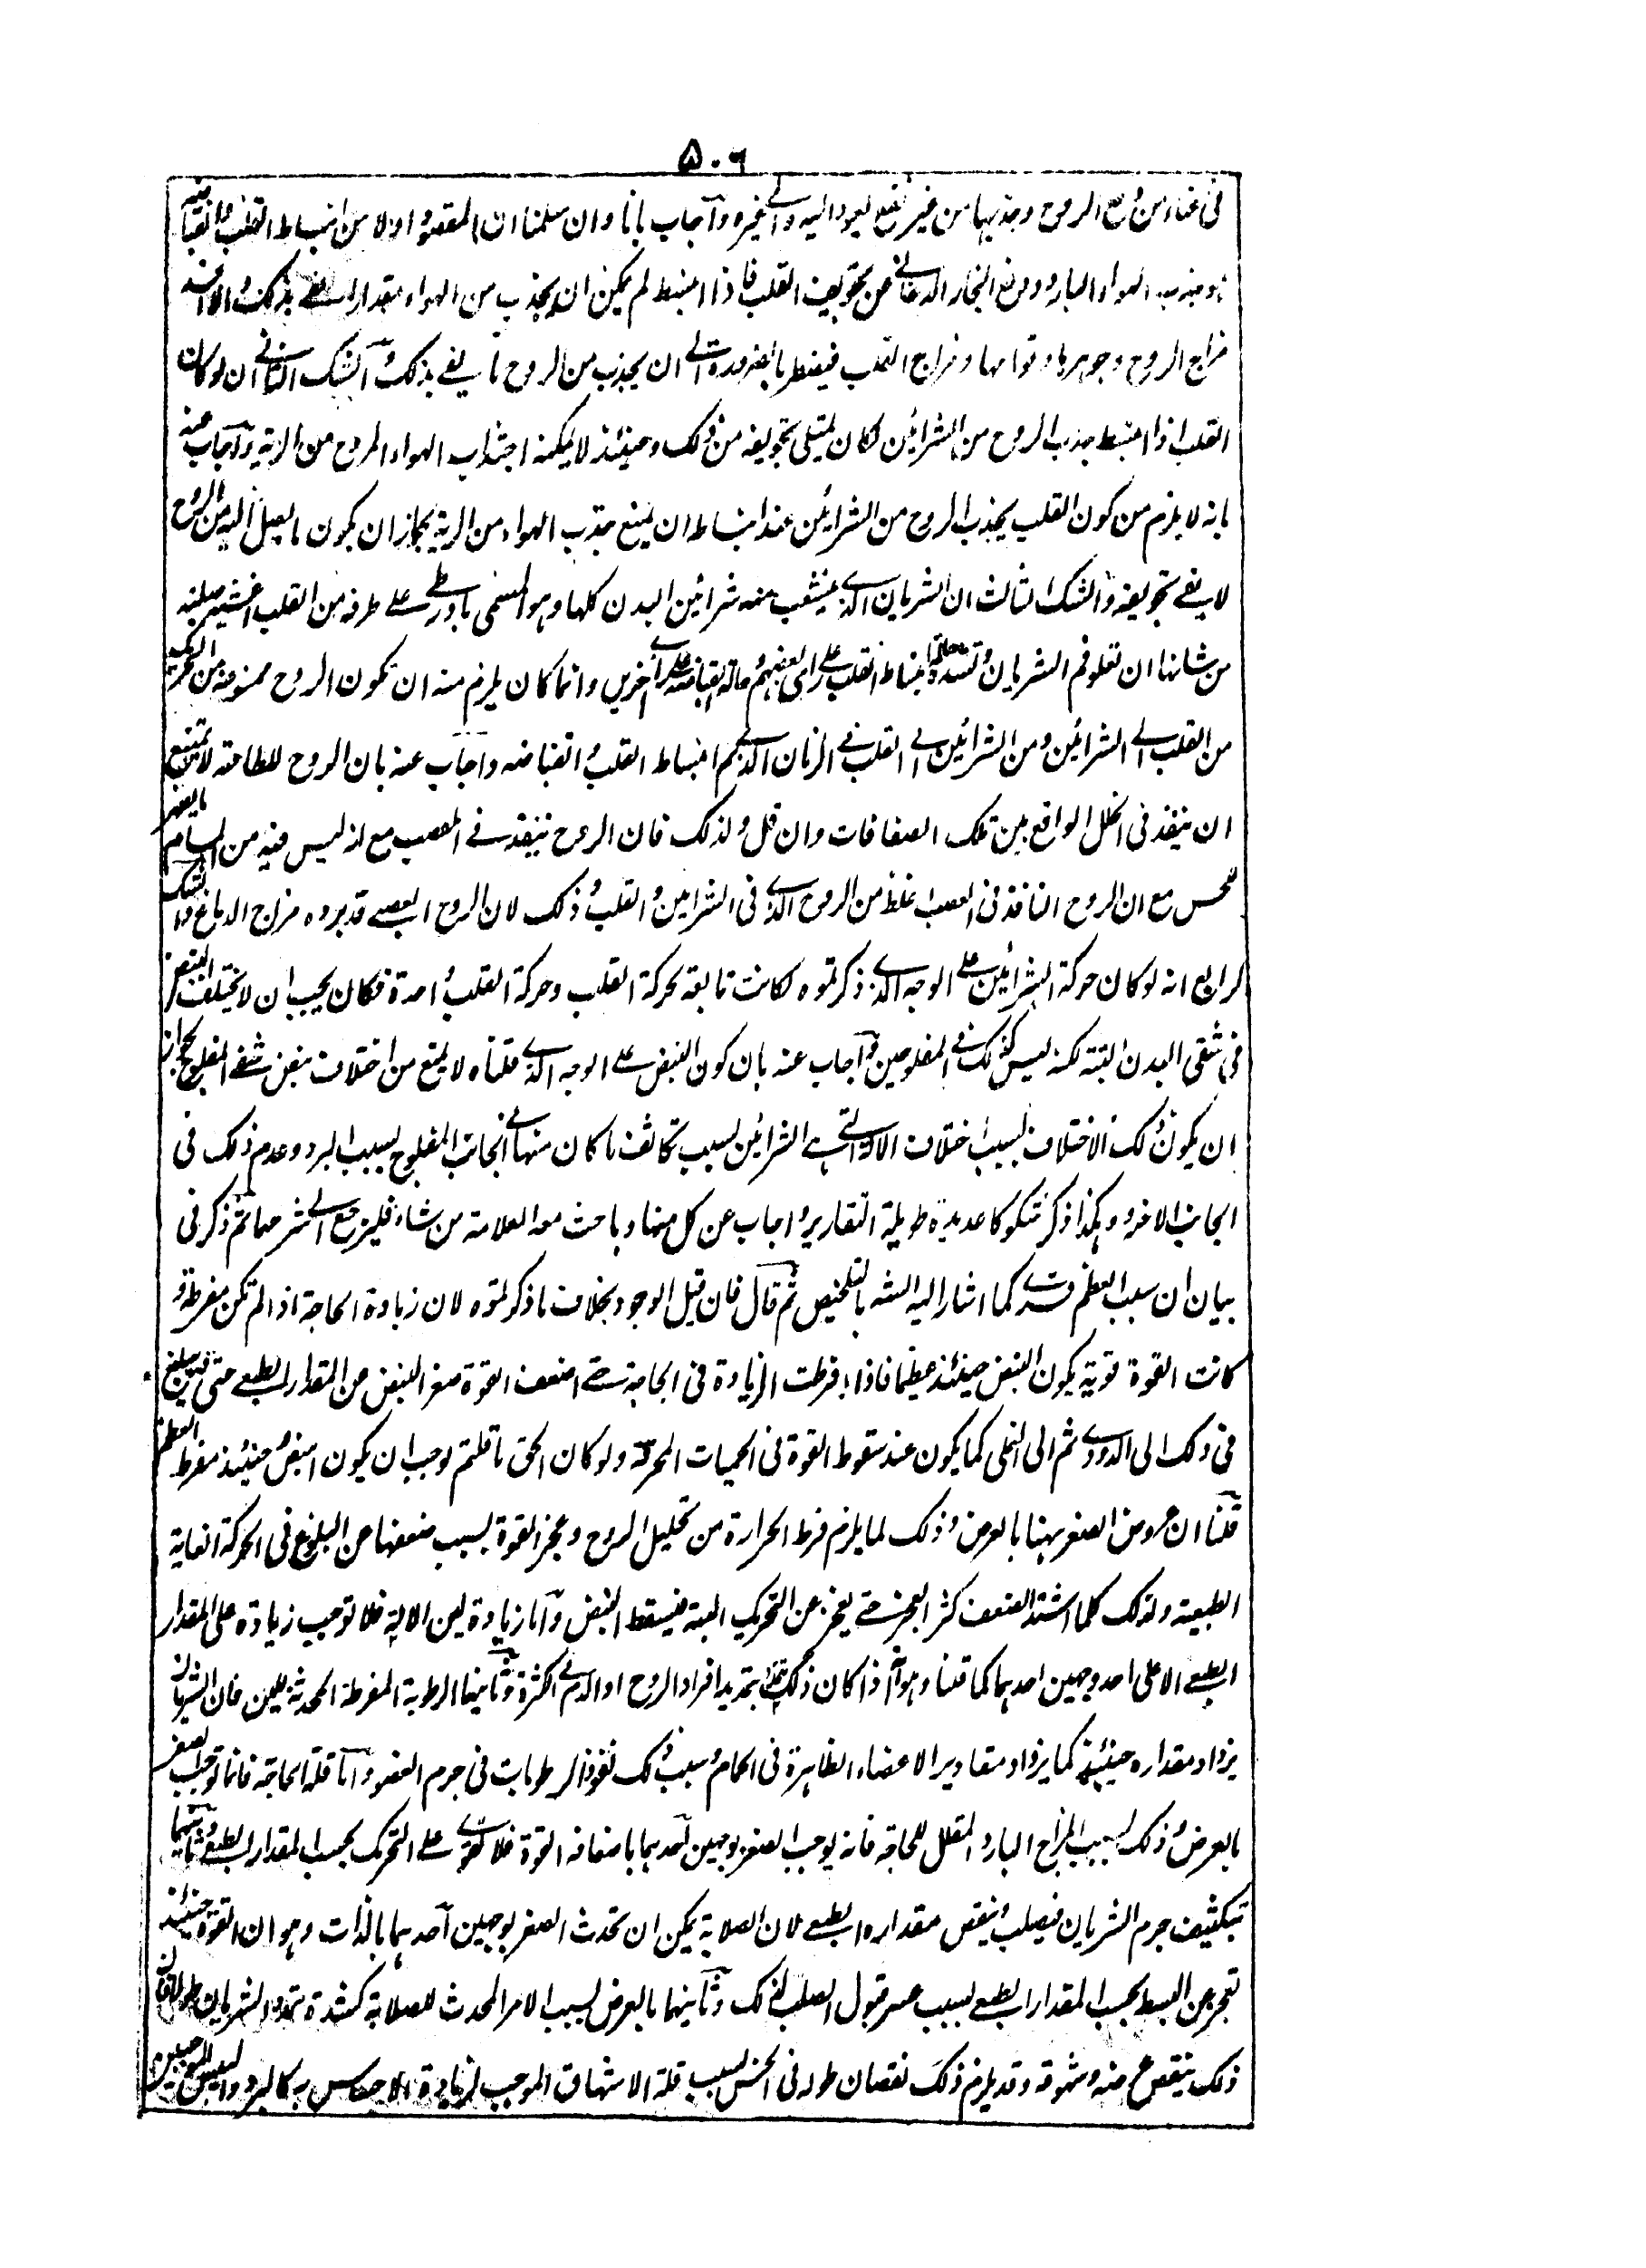 ٥٠٦
فى غناء من دفع الروح وجذبها من غير نفع يعود اليه والى غيره وآجاب بانا وان سلمنا ان المقصود اولا من انبساط القلب وانقباضه
هو جذب الهواء البارد ودفع البخار الدخانى عن تجويف القلب فاذا انبسط لم يمكن ان يجذب من الهواء مقدارا يفى بذلك والا فسد
مزاج الروح وجوهرها وقوامها ومزاج القلب فيضطر بالضرورة الى ان يجذب من الروح ما يفى بذلك والشك الثانى ان لو كان
القلب اذا انبسط يجذب الروح من الشرائين لكان يمتلى تجويفه من ذلك وحينئذ لا يمكنه اجتذاب الهواء المروح من الرية وآجاب عنه
بانه لا يلزم من كون القلب يجذب الروح من الشرائين عند انبساطه ان يمنع جذب الهواء من الرية لجواز ان يكون ما يصل اليه من الروح
لا يفى تجويفه والشك الثالث ان الشريان الذى ينشعب منه شرائين البدن كلها وهو المسمى باورطى على طرفه من القلب اغشية صلبة
من شانها ان تعلو فم الشريان وتسده حالة انبساط القلب على راى بعضهم وحالة انقباضه على راى آخرين وانما كان يلزم منه ان تكون الروح ممنوعة من الحركة
من القلب الى الشرائين ومن الشرائين الى القلب فى الزمان الذى بم انبساط القلب وانقباضه وآجاب عنه بان الروح للطافته لا يمتنع
ان ينفذ فى الخلل الواقع بين تلك الصفاقات وان قل ولذلك فان الروح ينفذ فى العصب مع انه ليس فيه من المسام ما يظهر
للحس مع ان الروح النافذ فى العصب اغلظ من الروح الذى فى الشرايين والقلب وذلك لان الروح العصبى قد برده مزاج الدماغ والشك
الرابع انه لو كان حركة الشرائين على الوجه الذى ذكرتموه لكانت تابعة لحركة القلب وحركة القلب واحدة فكان يجب ان لا يختلف النبض
فى شقى البدن البتة لكنه ليس كذلك فى المفلوجين وآجاب عنه بان كون النبض على الوجه الذى قلناه لا يمنع من اختلاف نبض شقى المفلوج لجواز
ان يكون ذلك الاختلاف بسبب اختلاف الآلة التى هى الشرائين بسبب تكاثف ما كان منها فى الجانب المفلوج بسبب البرد وعدم ذلك فى
الجانب الآخر وهكذا ذكر شكوكا عديدة طويلة التقارير واجاب عن كل منها وباحث معه العلامة من شاء فليرجع الى شرحهما ثم ذكر فى
بيان ان سبب العظم كما اشار اليه الشه بالتلخيص ثم قال فان قيل الوجود بخلاف ما ذكرتموه لان زيادة الحاجة اذا لم تكن مفرطة و
كانت القوة قوية يكون النبض حينئذ عظيما فاذا افرطت الزيادة فى الحاجة حتى اضعف القوة صغر النبض عن المقدار الطبيعى حتى يبلغ
فى ذلك الى الدودى ثم الى النملى كما يكون عند سقوط القوة فى الحميات المحرقة ولو كان الحق ما قلتم لوجب ان يكون النبض حينئذ مفرط العظم
قلنا ان عروض الصغر ههنا بالعرض وذلك لما يلزم فرط الحرارة من تحليل الروح وعجز القوة بسبب ضعفها عن البلوغ فى الحركة الغاية
الطبيعية ولذلك كلما اشتد الضعف كثر العجز حتى يعجز عن التحريك البتة فيسقط النبض وآما زيادة لين الآلة فلا توجب زيادة على المقدار
الطبيعى الا على احد وجهين احدهما كما قلنا وهو اذا كان ذلك بتمديد افراد الروح او الدم لكثرة وثانيها الرطوبة المفرطة المحدثة للين فان الشريان
يزداد مقداره حينئذ كما يزداد مقادير الاعضاء الظاهرة فى الحمام وسبب ذلك نفوذ الرطوبات فى جرم العضو وآما قلة الحاجة فانما توجب الصغر
بالعرض وذلك بسبب المزاج البارد المقلل للحاجة فانه يوجب الصغر بوجهين آحدهما باضعافه القوة فلا تقوى على التحريك بحسب المقدار الطبيعى وثانيهما
بتكثيف جرم الشريان فيصلب وينقص مقداره الطبيعى لان الصلابة يمكن ان تحدث الصغر بوجهين آحدهما بالذات وهو ان القوة حينئذ
تعجز عن البسط بحسب المقدار الطبيعى بسبب عسر قبول الصلب لذلك وثانيها بالعرض بسبب الامر المحدث للصلابة كشدة تمدد الشريان طولا فان
ذلك ينقص عرضه وشهوقه وقد يلزم ذلك نقصان طوله فى الحس بسبب قلة الاشهاق الموجب لزيادة الاحساس به كالبرد واليبس الموجبين